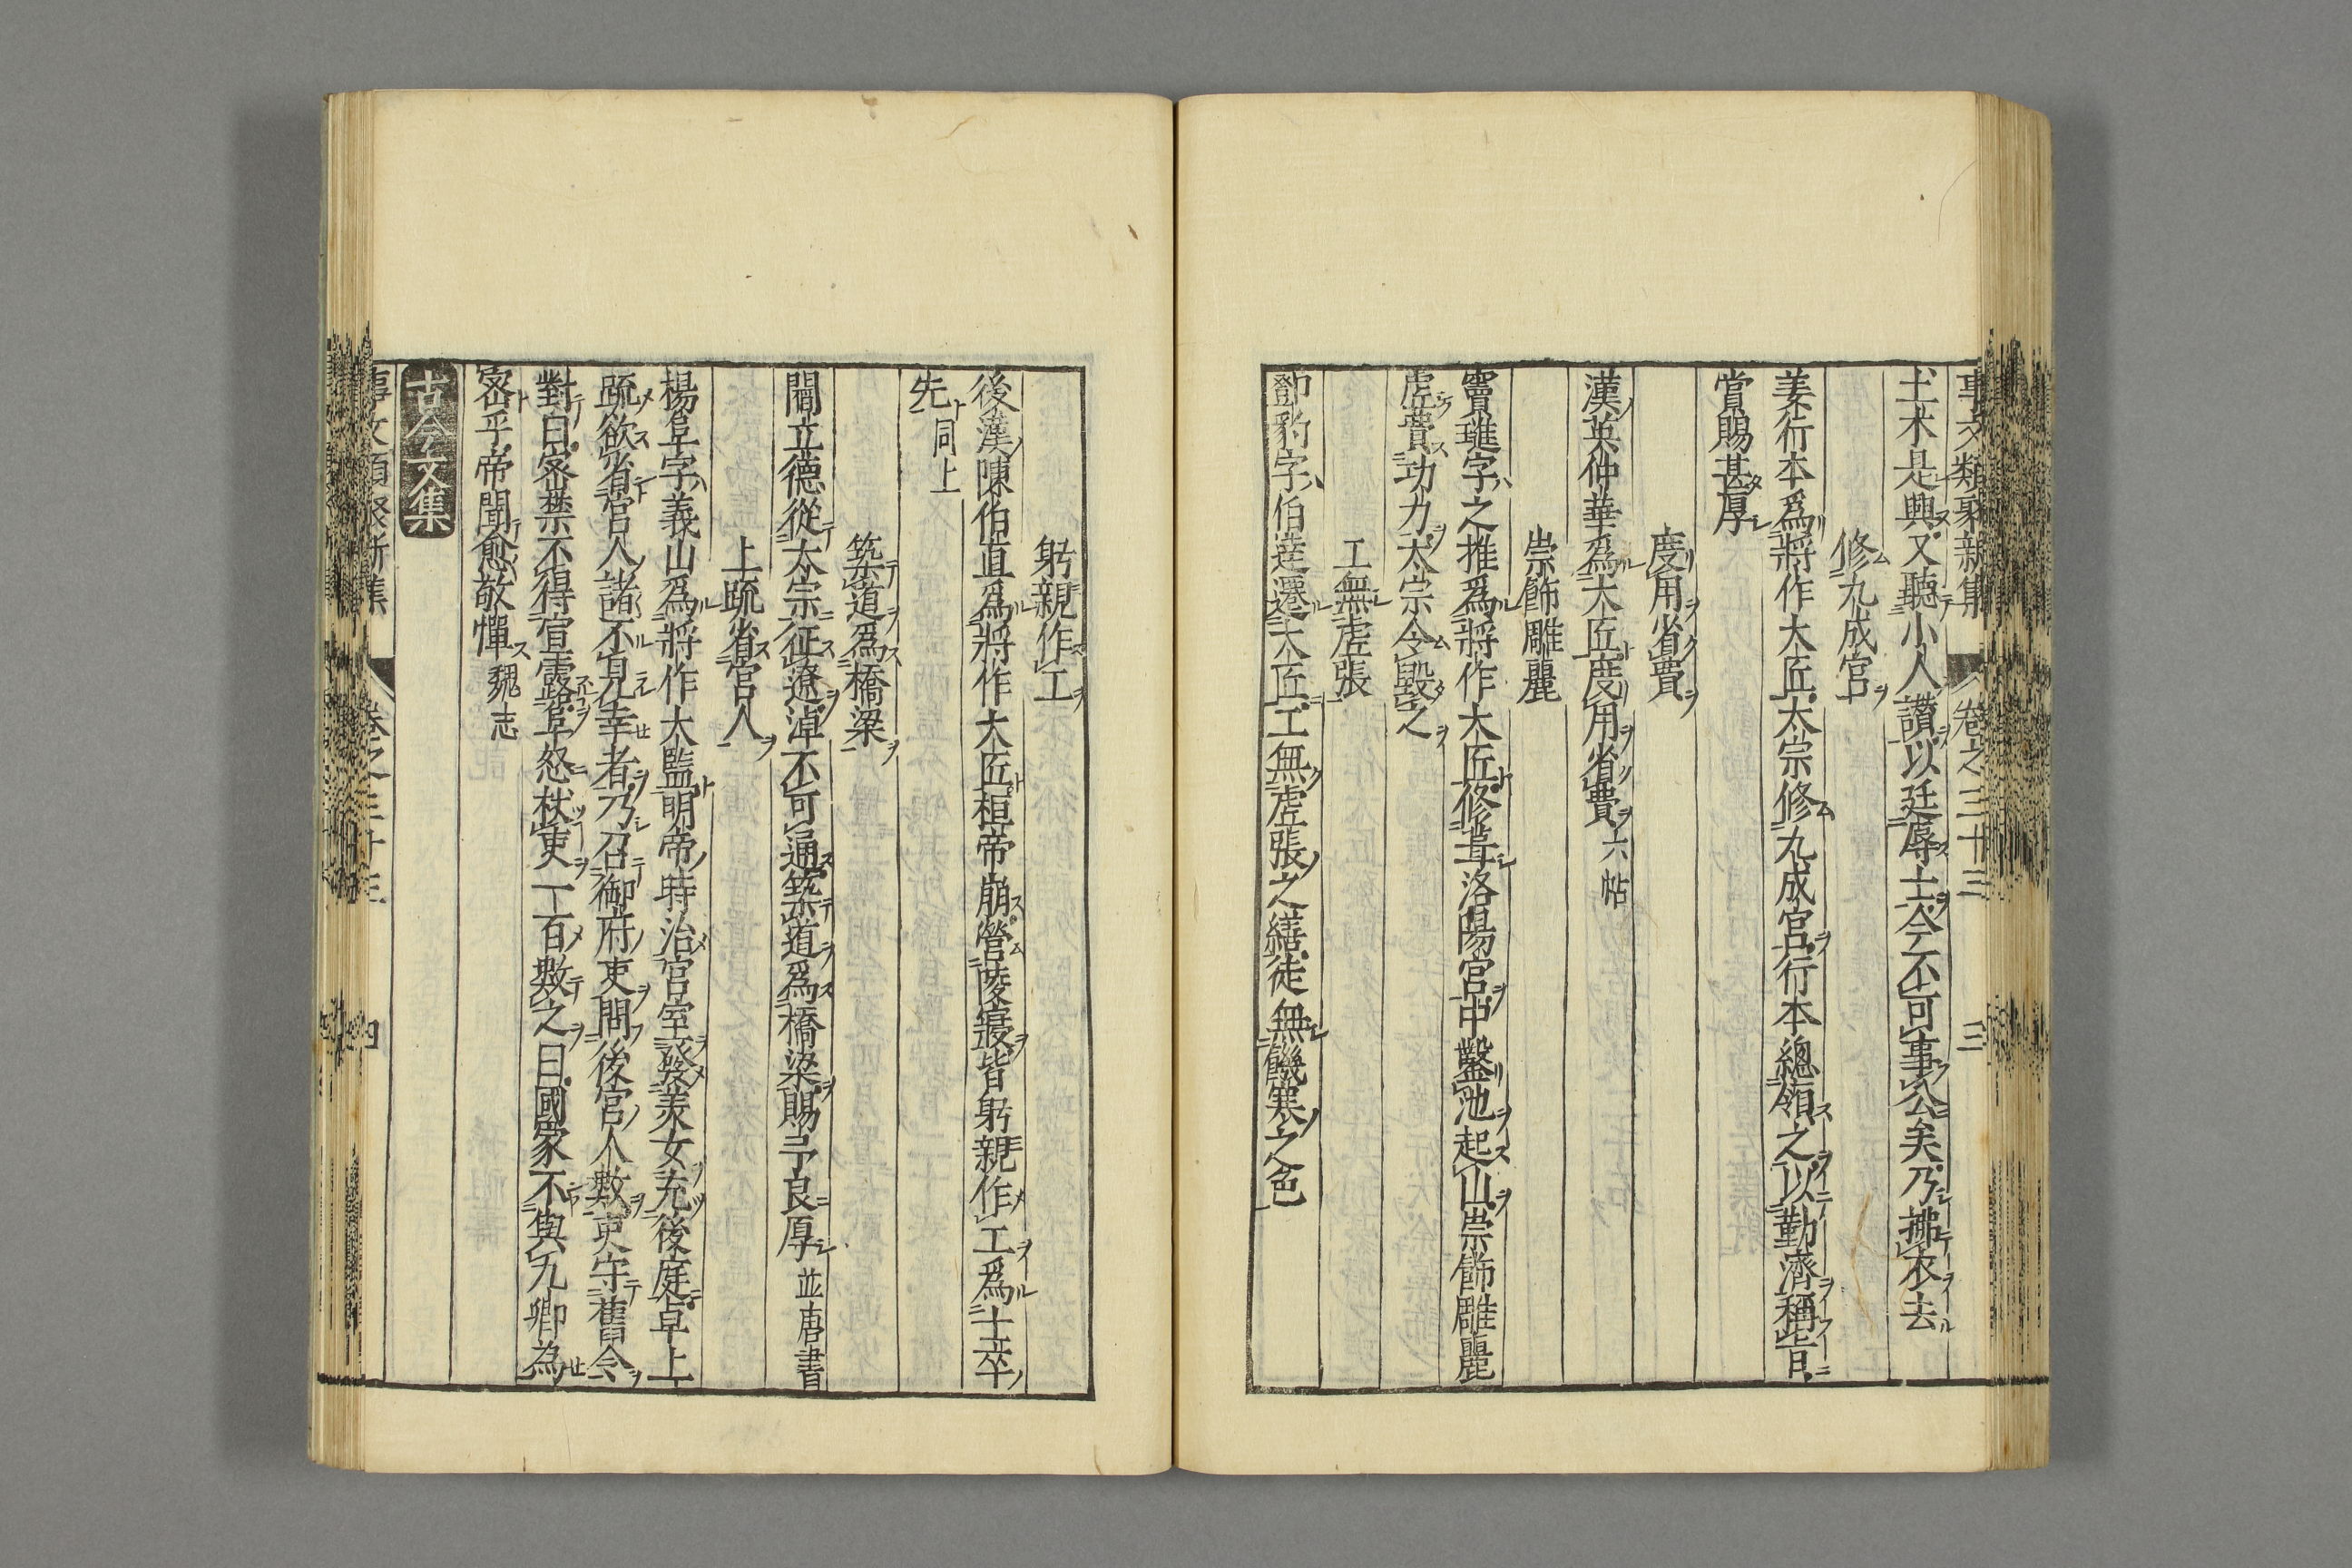 事文類聚新集 卷之三十三 三
土木是興又聽小人讚以廷辱士今不可事公矣乃拂衣去
修九成宮
姜行本爲將作大匠太宗修九成宮行本總領之以勤濟稱旨
賞賜甚厚
度用省費
漢英仲華爲大匠度用省費六帖
崇飾雕麗
竇璡字之推爲將作大匠修葺洛陽宮中鑿池起山崇飾雕麗
虛費功力太宗令毀之
工無虛張
鄧豹字伯達遷大匠工無虛張之繕徒無饑寒之色
躬親作工
後漢陳伯直爲將作大匠桓帝崩營陵寢皆躬親作工爲士卒
先同上
築道爲橋梁
閻立德從太宗征遼淖不可通築道爲橋梁賜予良厚並唐書
上疏省宮人
楊阜字義山爲將作大監明帝時治宮室發美女充後庭阜上
疏欲省宮人諸不見幸者乃召御府吏問後宮人數吏守舊令
對曰密禁不得宣露阜怒杖吏一百數之曰國家不與九卿為
密乎帝聞愈敬憚魏志
古今文集
事文類聚新集 卷之三十三 四